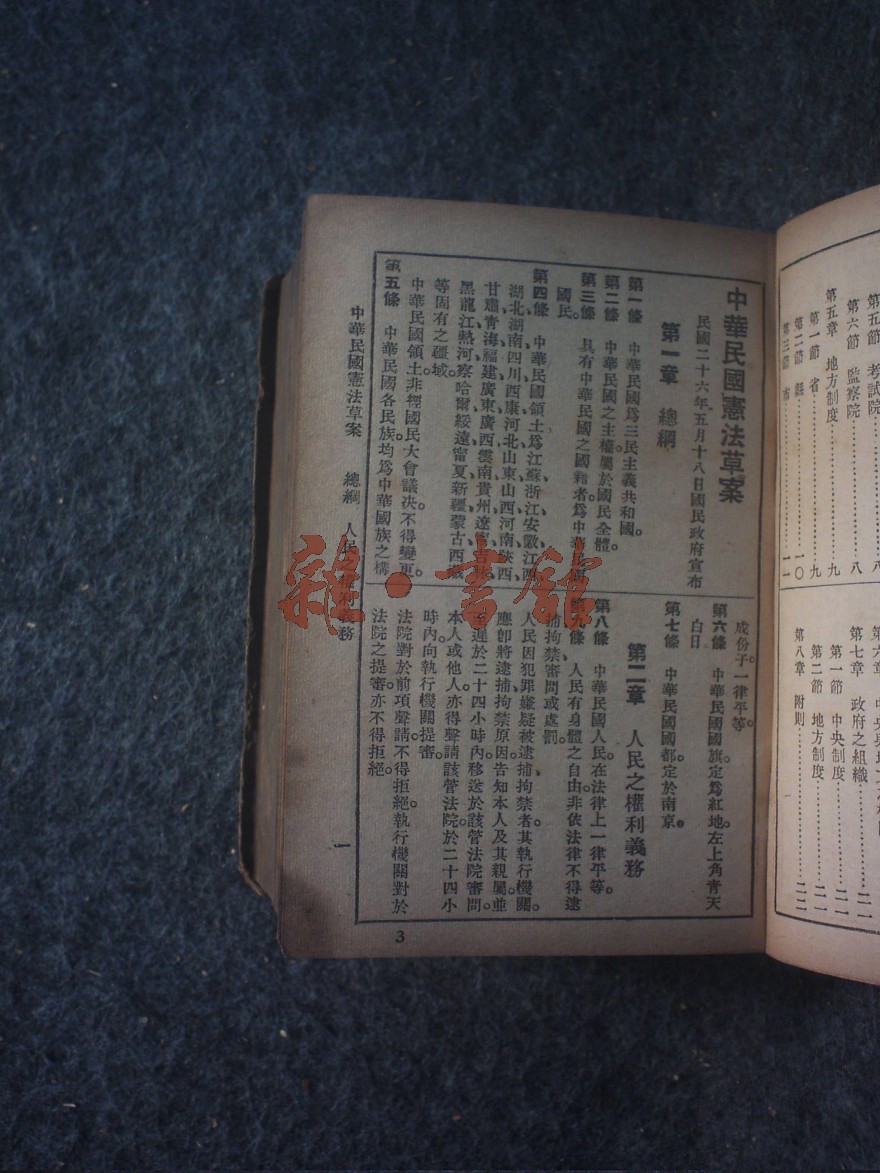 中華民國憲法草案
民國二十六年五月十八日國民政府宣布
第一章 總綱
第一條 中華民國爲三民主義共和國。
第二條 中華民國之主權屬於國民全體。
第三條 具有中華民國之國籍者、爲中華民國
國民。
第四條 中華民國領土爲江蘇、浙江、安徽、江西、
湖北、湖南、四川、西康、河北、山東、山西、河南、陝西、
甘肅、青海、福建、廣東、廣西、雲南、貴州、遼寧、吉林、
黑龍江、熱河、察哈爾、綏遠、甯夏、新疆、蒙古、西藏
等固有之疆域。
中華民國領土非經國民大會議决不得變更。
第五條 中華民國各民族均爲中華國族之構
成份子、一律平等。
第六條 中華民國國旗定爲紅地左上角青天
白日
第七條 中華民國國都、定於南京。
第二章 人民之權利義務
第八條 中華民國人民、在法律上一律平等。
第九條 人民有身體之自由。非依法律不得逮
捕、拘禁、審問或處罰。
人民因犯罪嫌疑被逮捕拘禁者、其執行機關
應卽將逮捕拘禁原因、告知本人及其親屬、並
至遲於二十四小時內移送於該管法院審問。
本人或他人、亦得聲請該管法院於二十四小
時內向執行機關提審。
法院對於前項聲請、不得拒絕。執行機關對於
法院之提審、亦不得拒絕。
中華民國憲法草案 總綱 人民之權利義務
一
3
第五節 考試院 八
第六節 監察院 八
第五章 地方制度 九
第一節 省 九
第二節 縣 一〇
第三節 市 一一
第七章 政府之組織 二一
第一節 中央制度 二一
第二節 地方制度 二一
第八章 附則 二二
雜·書館